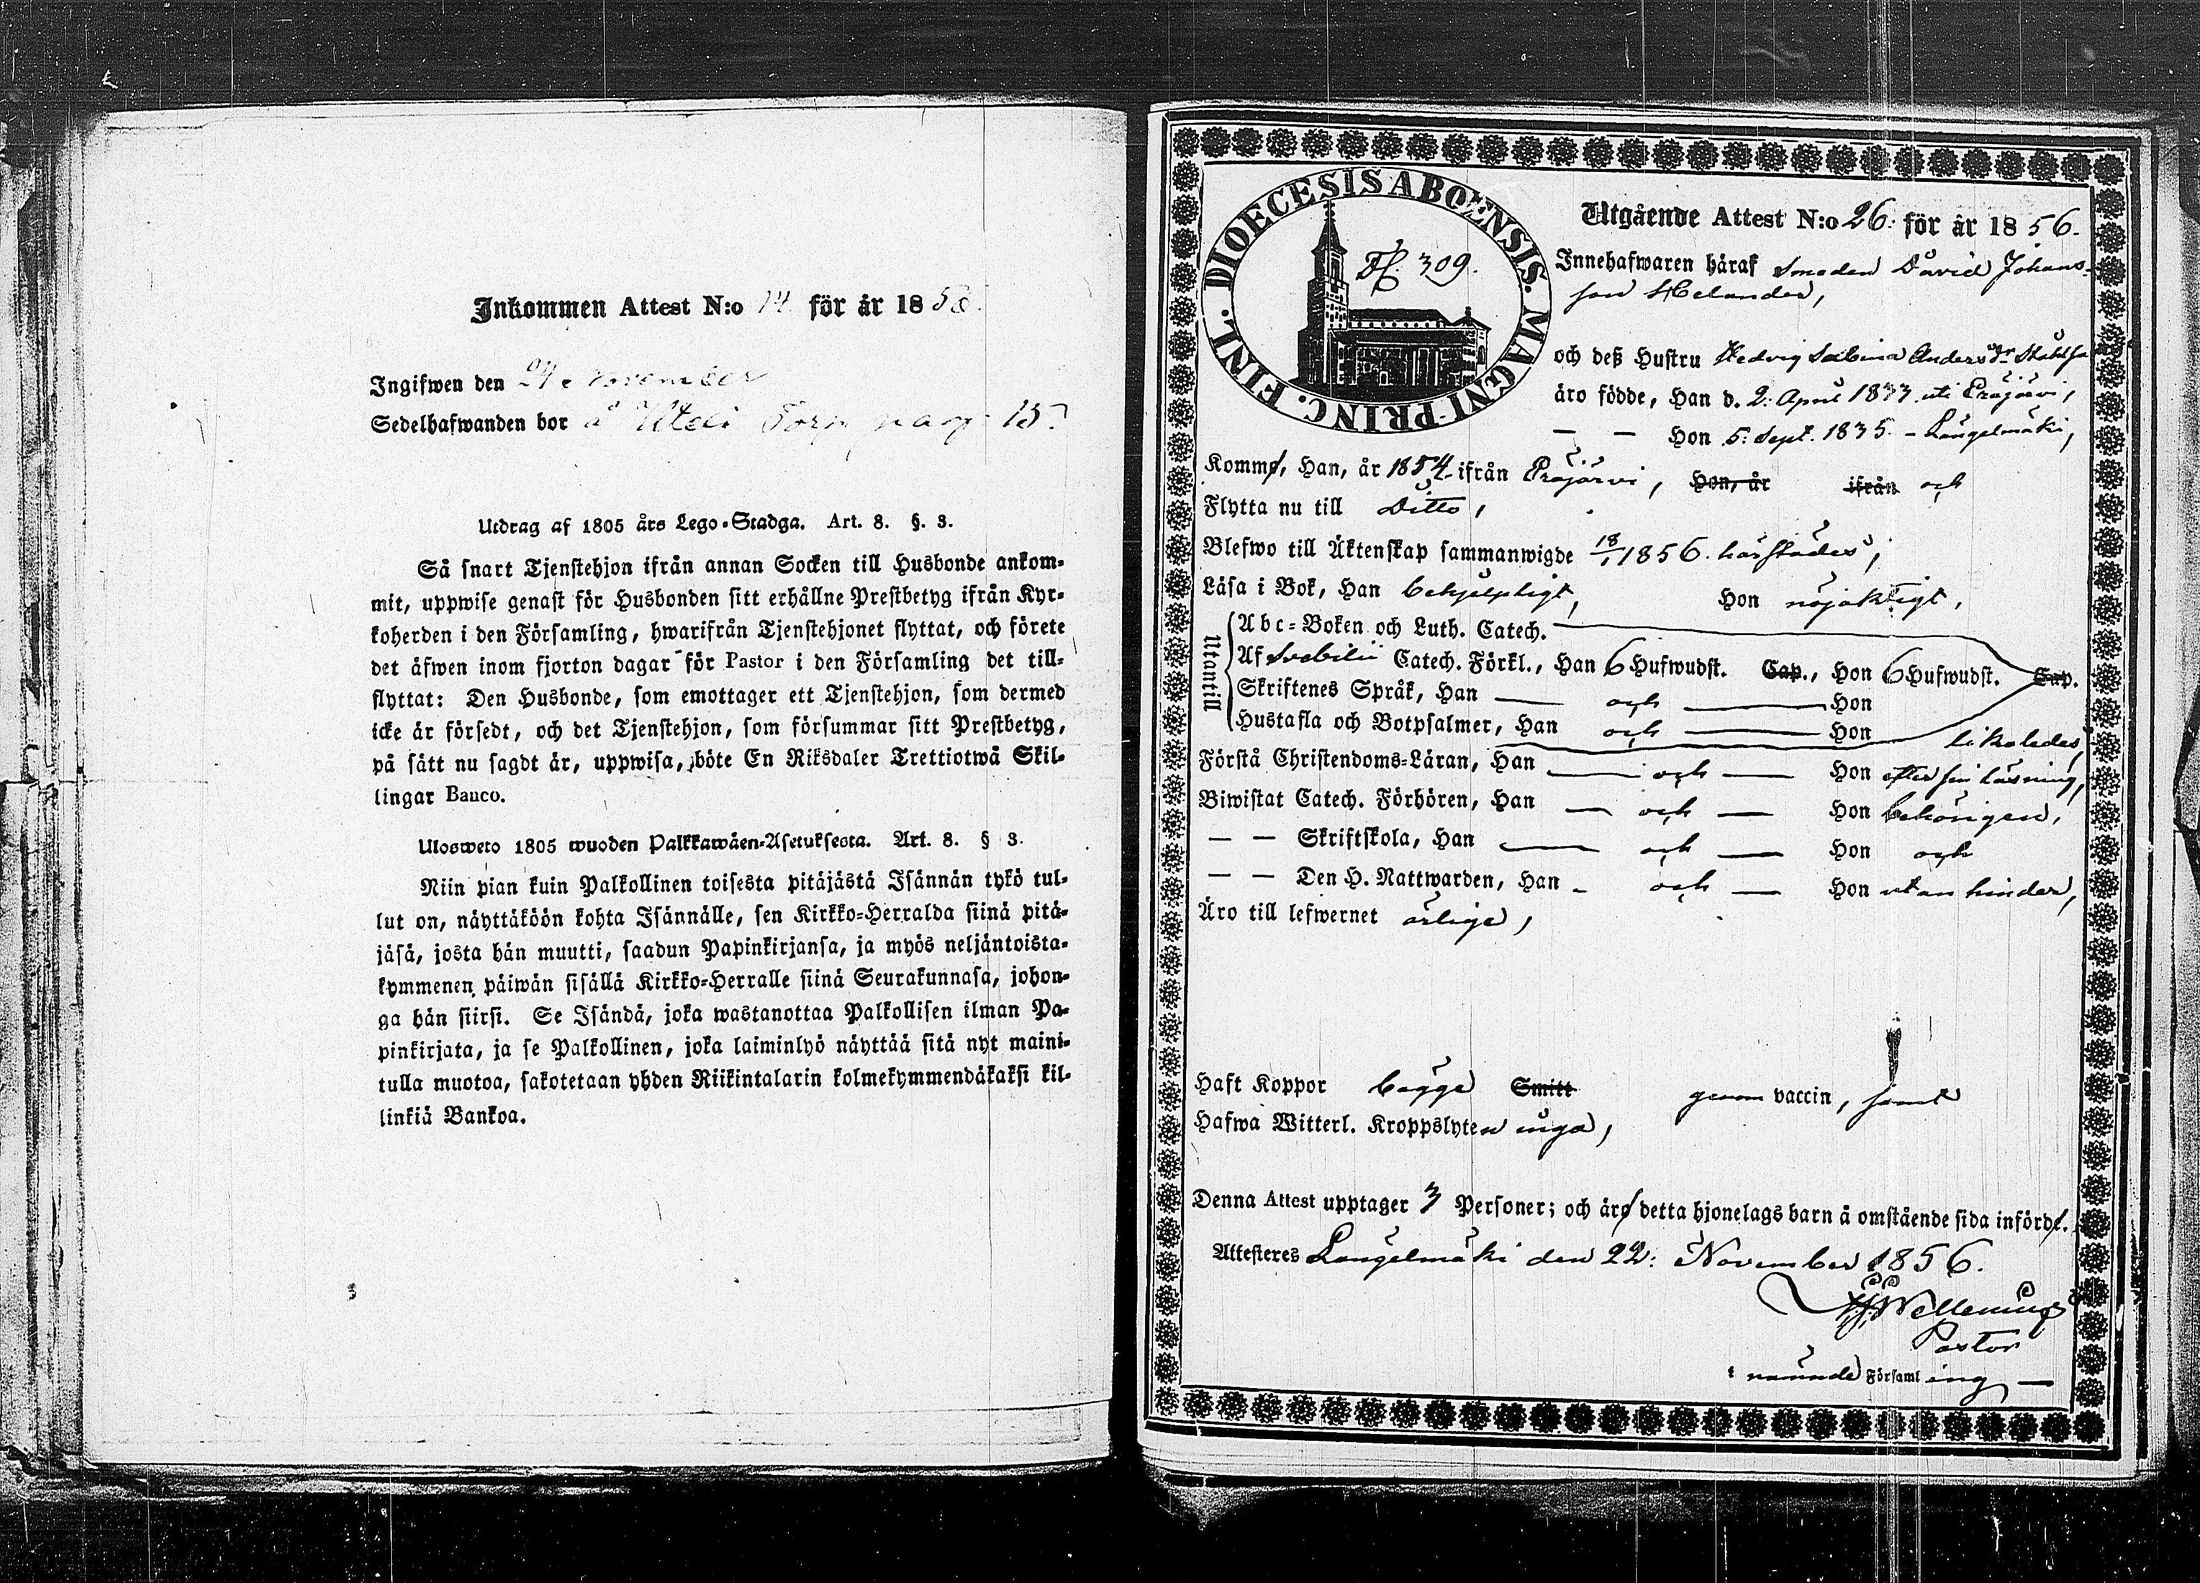 Inkommen Attest N:o 14. för år 18
Ingifwen den 24 November
Sedelhafwanden bor å Uteli Torp pag 15.
Utdrag af 1805 års Lego-Stadga. Art. 8. §. 3.
Så snart Tjenstehjon ifrån annan Socken till Husbonde ankom-
mit, uppwise genast för Husbonden sitt erhållne Prestbetyg ifrån Kyr-
koherden i den Församling, hwarifrån Tjenstehjonet flyttat, och förete
det äfwen inom fjorton dagar för Pastor i den Församling det till-
flyttat: Den Husbonde, som emottager ett Tjenstehjon, som dermed
icke är försedt, och det Tjenstehjon, som försummar sitt Prestbetyg,
på sätt nu sagdt är, uppwisa, böte En Riksdaler Trettiotwå Skil-
lingar Banco.
Ulosweto 1805 wuoden Palkkawäen-Asetuksesta. Art. 8. § 3.
Niin pian kuin Palkollinen toisesta pitäjästä Isännän tykö tul-
lut on, näyttäköön kohta Isännälle, sen Kirkko-Herralda siinä pitä-
jäsä, josta hän muutti, saadun Papinkirjansa, ja myös neljäntoista-
kymmenen päiwän sisällä Kirkko-Herralle siinä Seurakunnasa, johon-
ga hän siirsi. Se Isändä, joka wastanottaa Palkollisen ilman Pa-
pinkirjata, ja se Palkollinen, joka laiminlyö näyttää sitä nyt maini-
tulla muotoa, sakotetaan yhden Riikintalarin kolmekymmendäkaksi kil-
linkiä Bankoa.
DIOECESIS ABOENSIS. MAGNI PRINC. FINL.
309.
Utgående Attest N:o 26. för år 1856.
Innehafwaren häraf Smeden David Johans-
son Helander,
och deß Hustru Hedvig Sabina Andersdr
äro födde, Han d. 2. April 1833 uti Eräjärvi,
— — Hon 5. Sept. 1835 - Längelmäki,
Komm, Han, år 1854 ifrån Eräjärvi, Hon, år ifrån och
Flytta nu till Ditto,
Blefwo till Äktenskap sammanwigde 18/1 1856. härstädes,
Läsa i Bok, Han behjelpligt, Hon nöjaktigt,
Utantill
Abc-Boken och Luth. Catech.
Af Svebilii Catech. Förkl., Han 6 Hufwudst. Cap., Hon 6 Hufwudst. Cap.
Skriftenes Språk, Han — och — Hon
Hustafla och Botpsalmer, Han och — Hon likaledes,
Förstå Christendoms-Läran, Han — och — Hon efter sin läsning,
Biwistat Catech. Förhören, Han — och — Hon behörigen,
— — Skriftskola, Han — och — Hon och
— — Den H. Nattwarden, Han - och — Hon utan hinder,
Äro till lefwernet ärlige,
Haft Koppor bägge Smitt genom vaccin, samt
Hafwa Witterl. Kroppslyten inga,
Denna Attest upptager 3 Personer; och äro detta hjonelags barn å omstående sida införde.
Attesteres Längelmäki den 22: November 1856.
Pastor
i nämnde Församling —